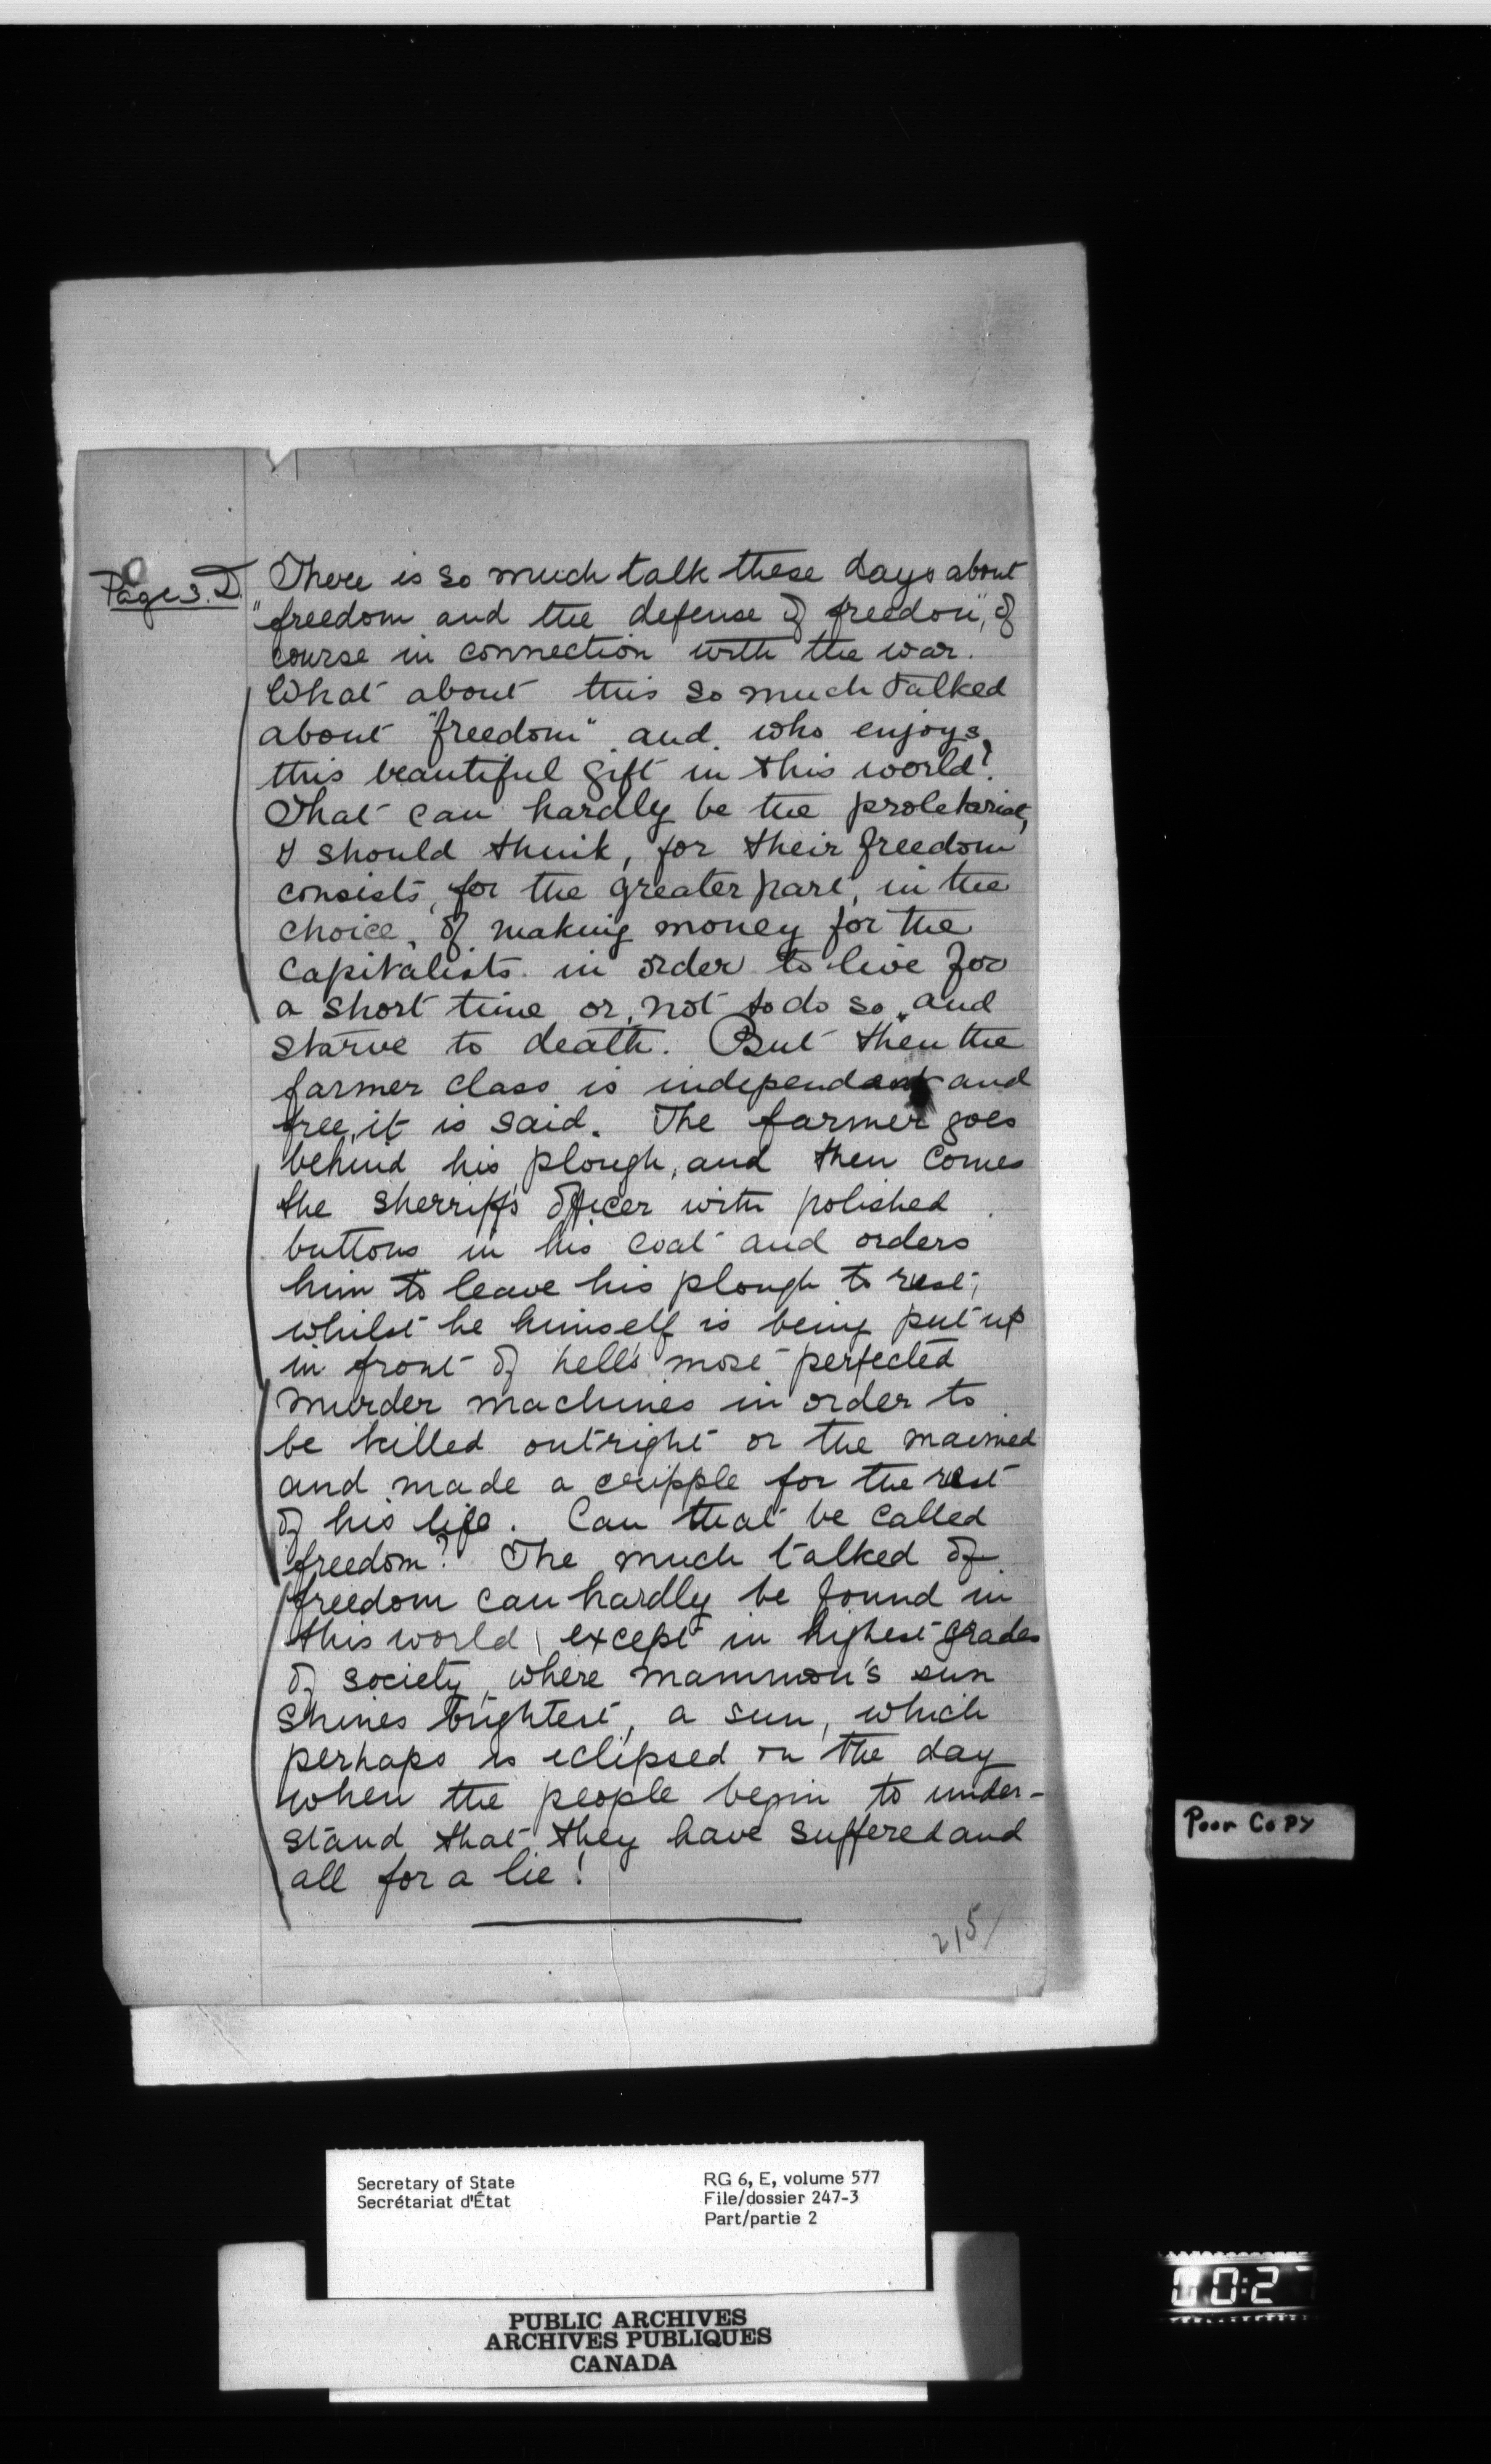 Page 3. D.
There is so much talk these days about
"freedom and the defense of freedom", of
course in connection with the war.
What about this so much talked
about "freedom" and who enjoys
this beautiful gift in this world?
That can hardly be the proletariat,
I should think, for their freedom
consists, for the greater part, in the
choice, of making money for the
capitalists in order to live for
a short time or, not to do so, and
starve to death. But then the
farmer class is independant and
free, it is said. The farmer goes
behind his plough, and then comes
the sherriff's officer with polished
buttons in his coat and orders
him to leave his plough to rest,
whilst he himself is being put up
in front of hell's most perfected
murder machines in order to
be killed outright or the maimed
and made a cripple for the rest
of his life. Can that be called
freedom? The much talked of
freedom can hardly be found in
this world, except in highest grades
of society, where mammon's sun
shines brightest, a sun, which
perhaps is eclipsed on the day
when the people begin to under-
stand that they have suffered and
all for a lie!
215
Poor Copy
Secretary of State
Secrétariat d'État
RG 6, E, volume 577
File/dossier 247-3
Part/partie 2
PUBLIC ARCHIVES
ARCHIVES PUBLIQUES
CANADA